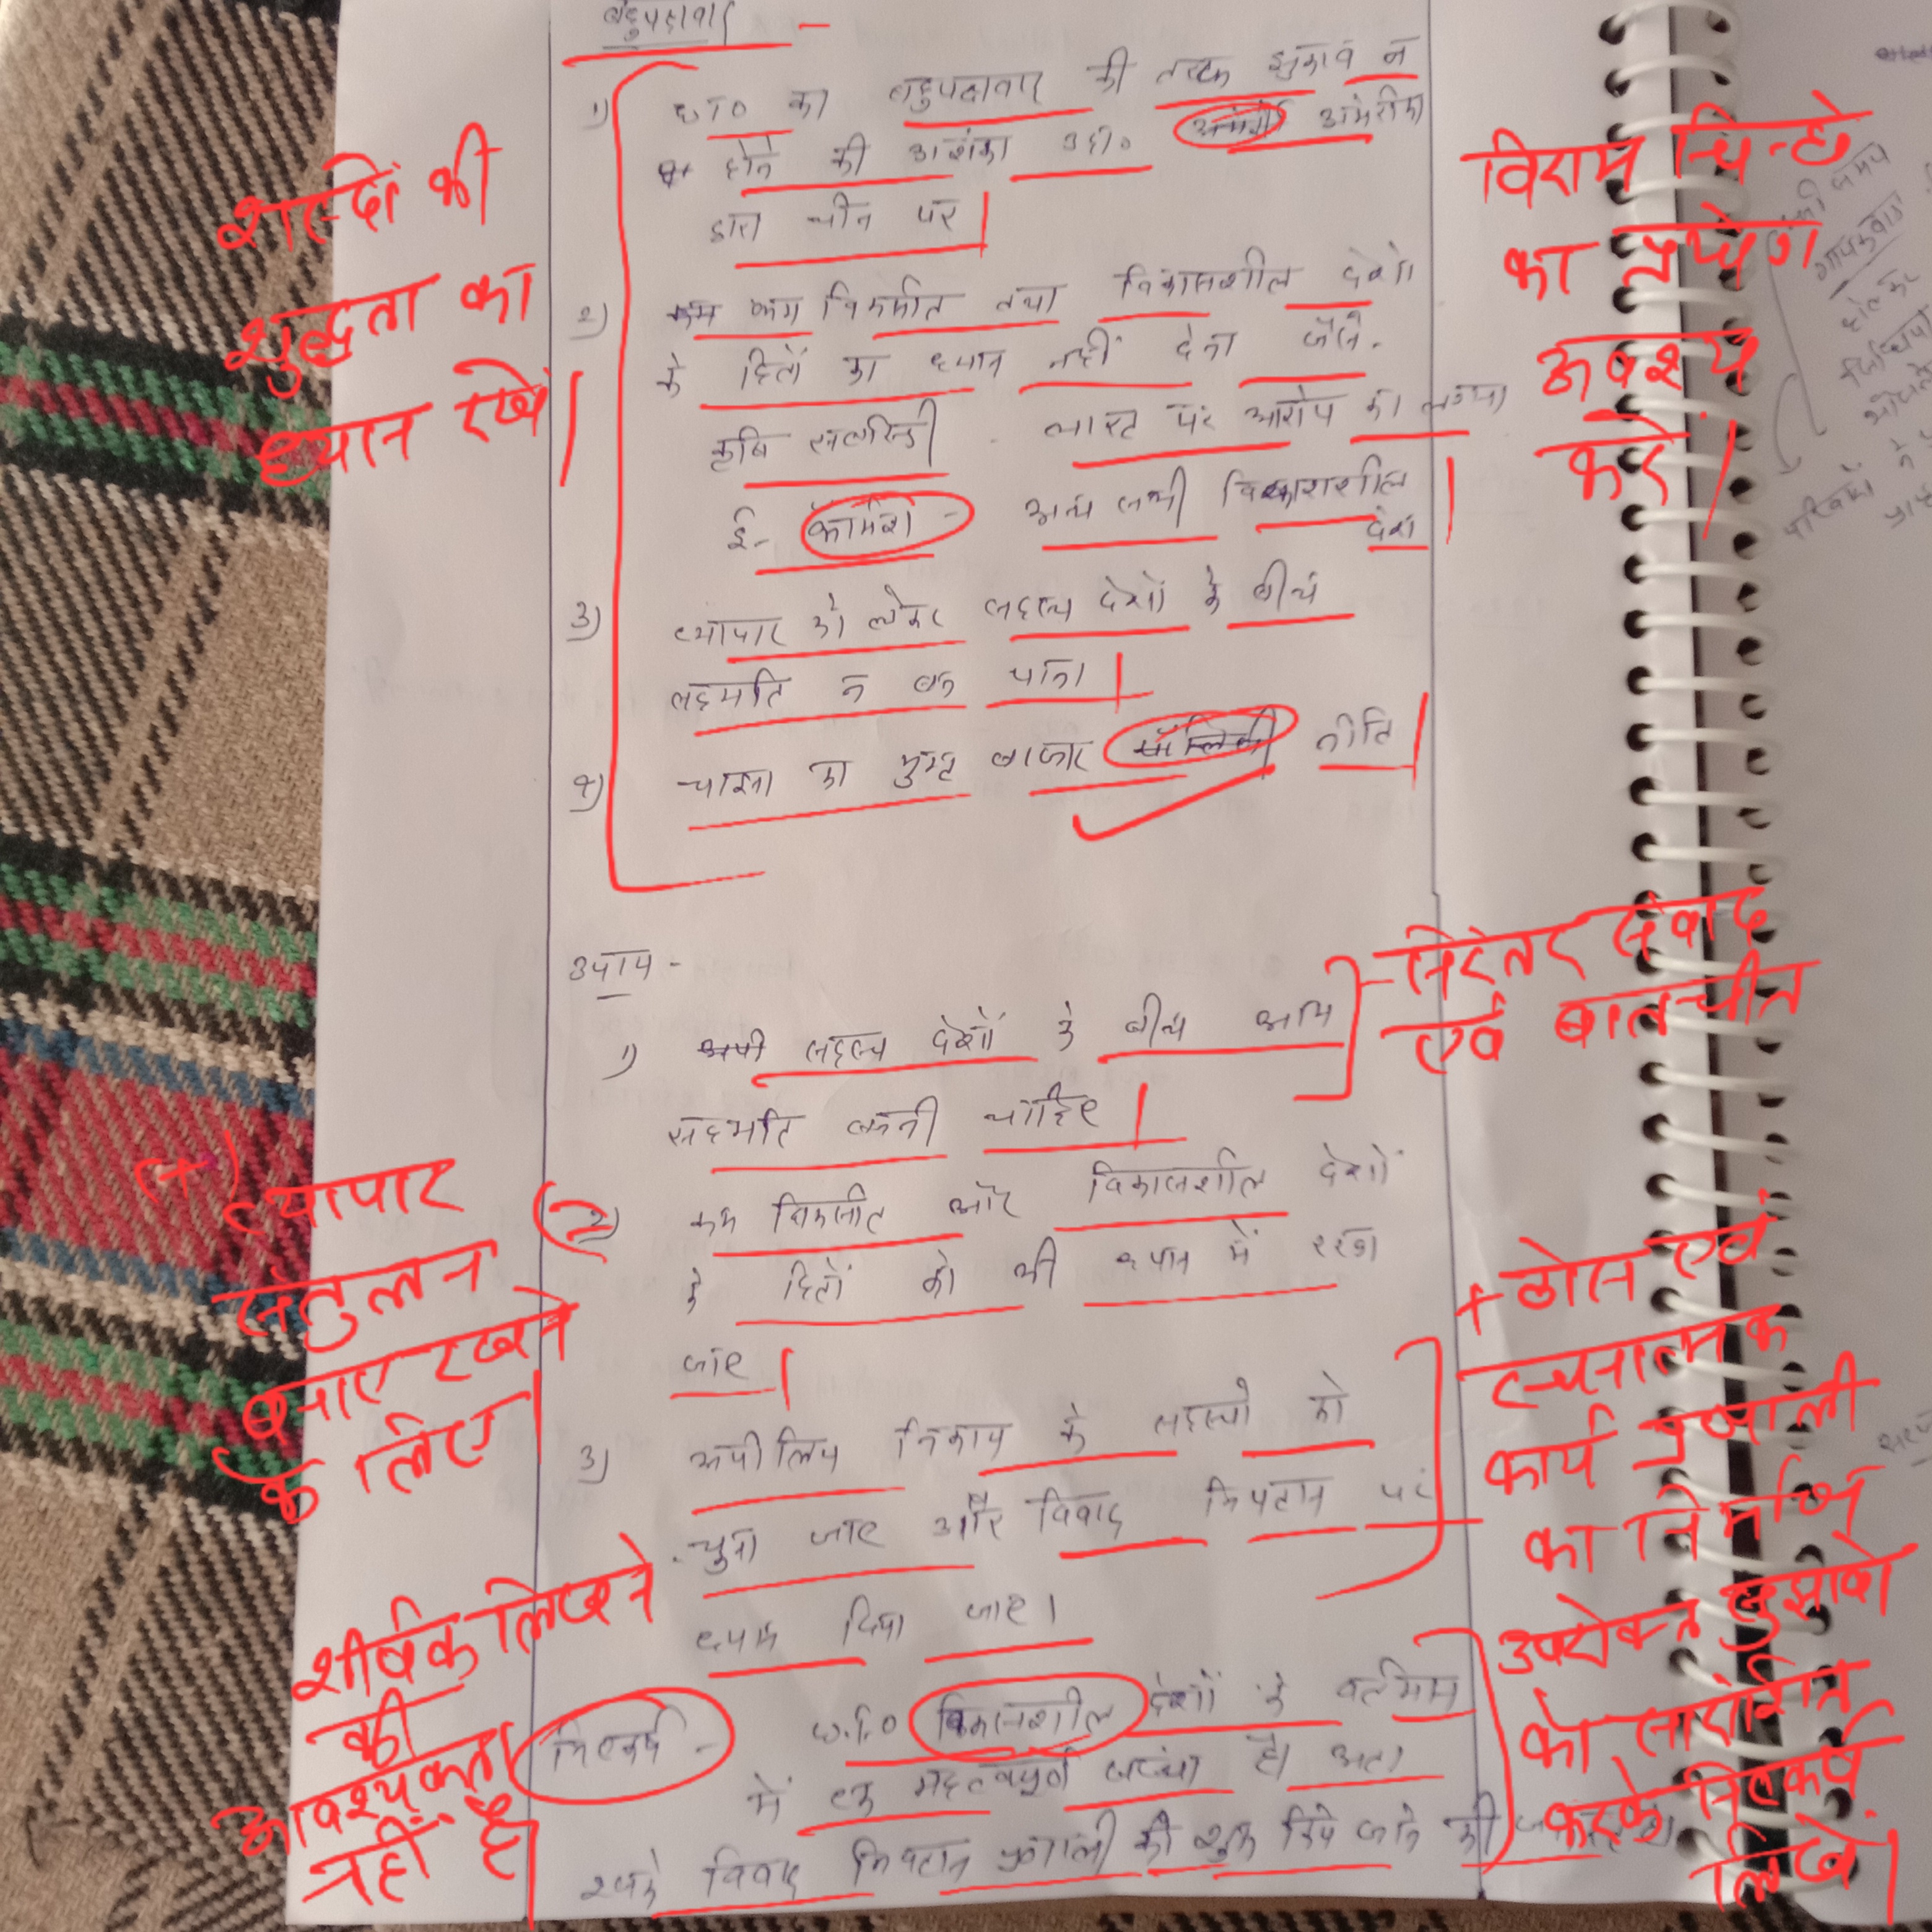 बहुपक्षवाद -
1) WTO का बहुपक्षवाद की तरफ झुकाव न
होने की आशंका उदा० अमेरिका
द्वारा चीन पर
शब्दों की
शुद्धता का
ध्यान रखें।
विराम चिन्हों
का प्रयोग
अवश्य
करें।
2) कम विकसित तथा विकासशील देशों
के हितों का ध्यान नहीं देना जैसे-
कृषि सब्सिडी - भारत पर आरोप का लगना
ई- कॉमर्स - अन्य सभी विकासशील
देश
3) व्यापार को लेकर सदस्य देशों के बीच
सहमति न बन पाना।
4) चाइना का मुक्त बाजार नीति
उपाय -
1) सभी सदस्य देशों के बीच आम
सहमति बननी चाहिए।
निरंतर संवाद
एवं बातचीत
2) कम विकसित और विकासशील देशों
के हितों को भी ध्यान में रखा
जाए।
(+) व्यापार
संतुलन
बनाए रखने
के लिए।
3) अपीलिय निकाय के सदस्यो को
चुना जाए और विवाद निपटान पर
ध्यान दिया जाए।
+ ठोस एवं
रचनात्मक
कार्य प्रणाली
का निर्माण
शीर्षक लिखने
की
आवश्यकता
नहीं है।
निष्कर्ष - W.T.O विकासशील देशों के वर्तमान
में एक महत्वपूर्ण संस्था है। अतः
इसके विवाद निपटान प्रणाली को शुरू किये जाने की
उपरोक्त सुझावों
को सारांशित
करके निष्कर्ष
लिखें।